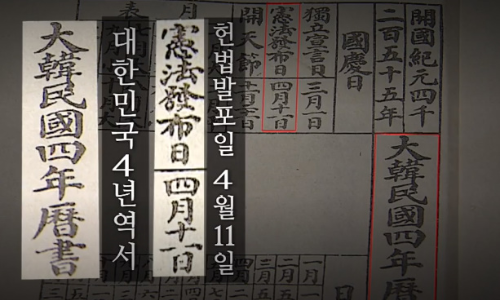 開國紀元四千
二百五十五年
大韓民國四年曆
國慶日
獨立宣言日 三月一日
憲法發布日 四月十一日
開天節
헌법발포일 4월11일
憲法發布日 四月十一日
대한민국4년역서
大韓民國四年曆書